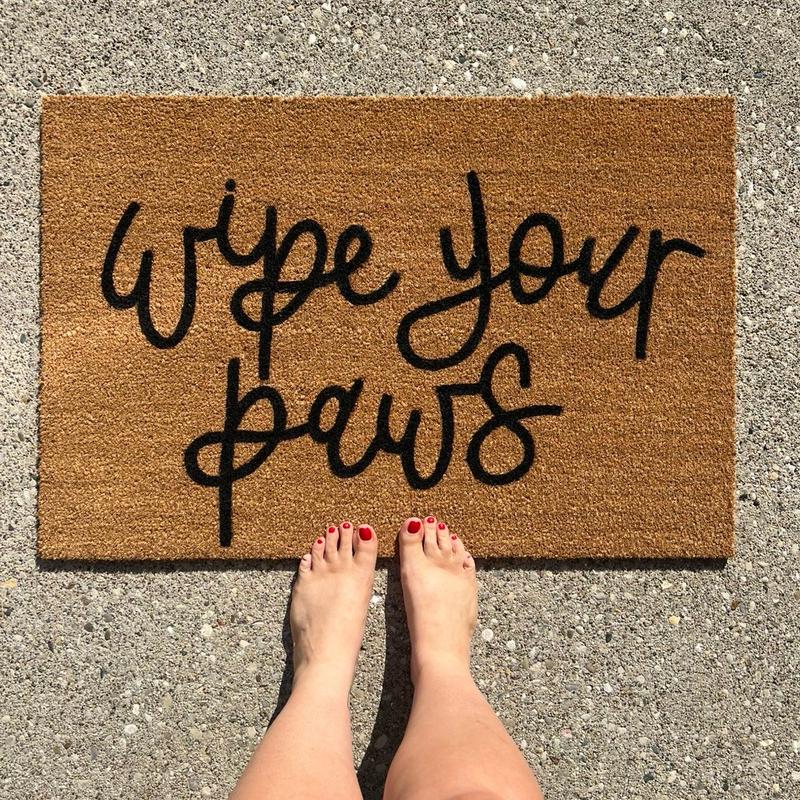 wipe your
paws